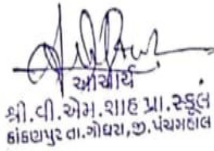 આચાર્ય
શ્રી.વી.એમ.શાહ પ્રા.સ્કૂલ
કાંકણપુર તા.ગોધરા,જી.પંચમહાલ